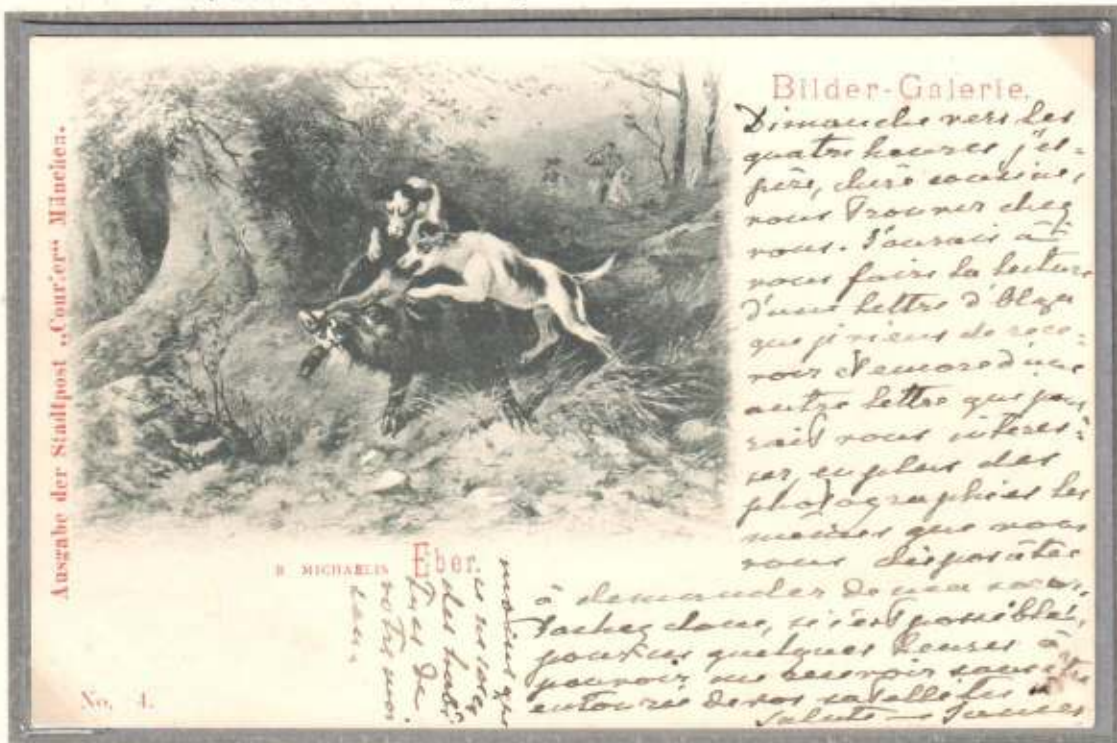 Bilder-Galerie.
Ausgabe der Stadtpost „Courier“ München.
Dimanche vers les
quatre heures j'es-
père, chère cousine,
vous trouver chez
vous. J'aurais à
vous faire la lecture
d'une lettre d'Olga
que je viens de rece-
voir et encore d'une
autre lettre qui pour
rait vous intéres-
ser, en plus des
photographies les
mêmes que vous
vous disposâtes
à demander de ma sœur.
Tachez donc, si c'est possible,
pour ces quelques heures à
pouvoir me recevoir sans être
entourée de vos satellites
Salute
moins que
ce ne soyez
des habi
tués de
votre
B. MICHAELIS
Eber.
No. 4.